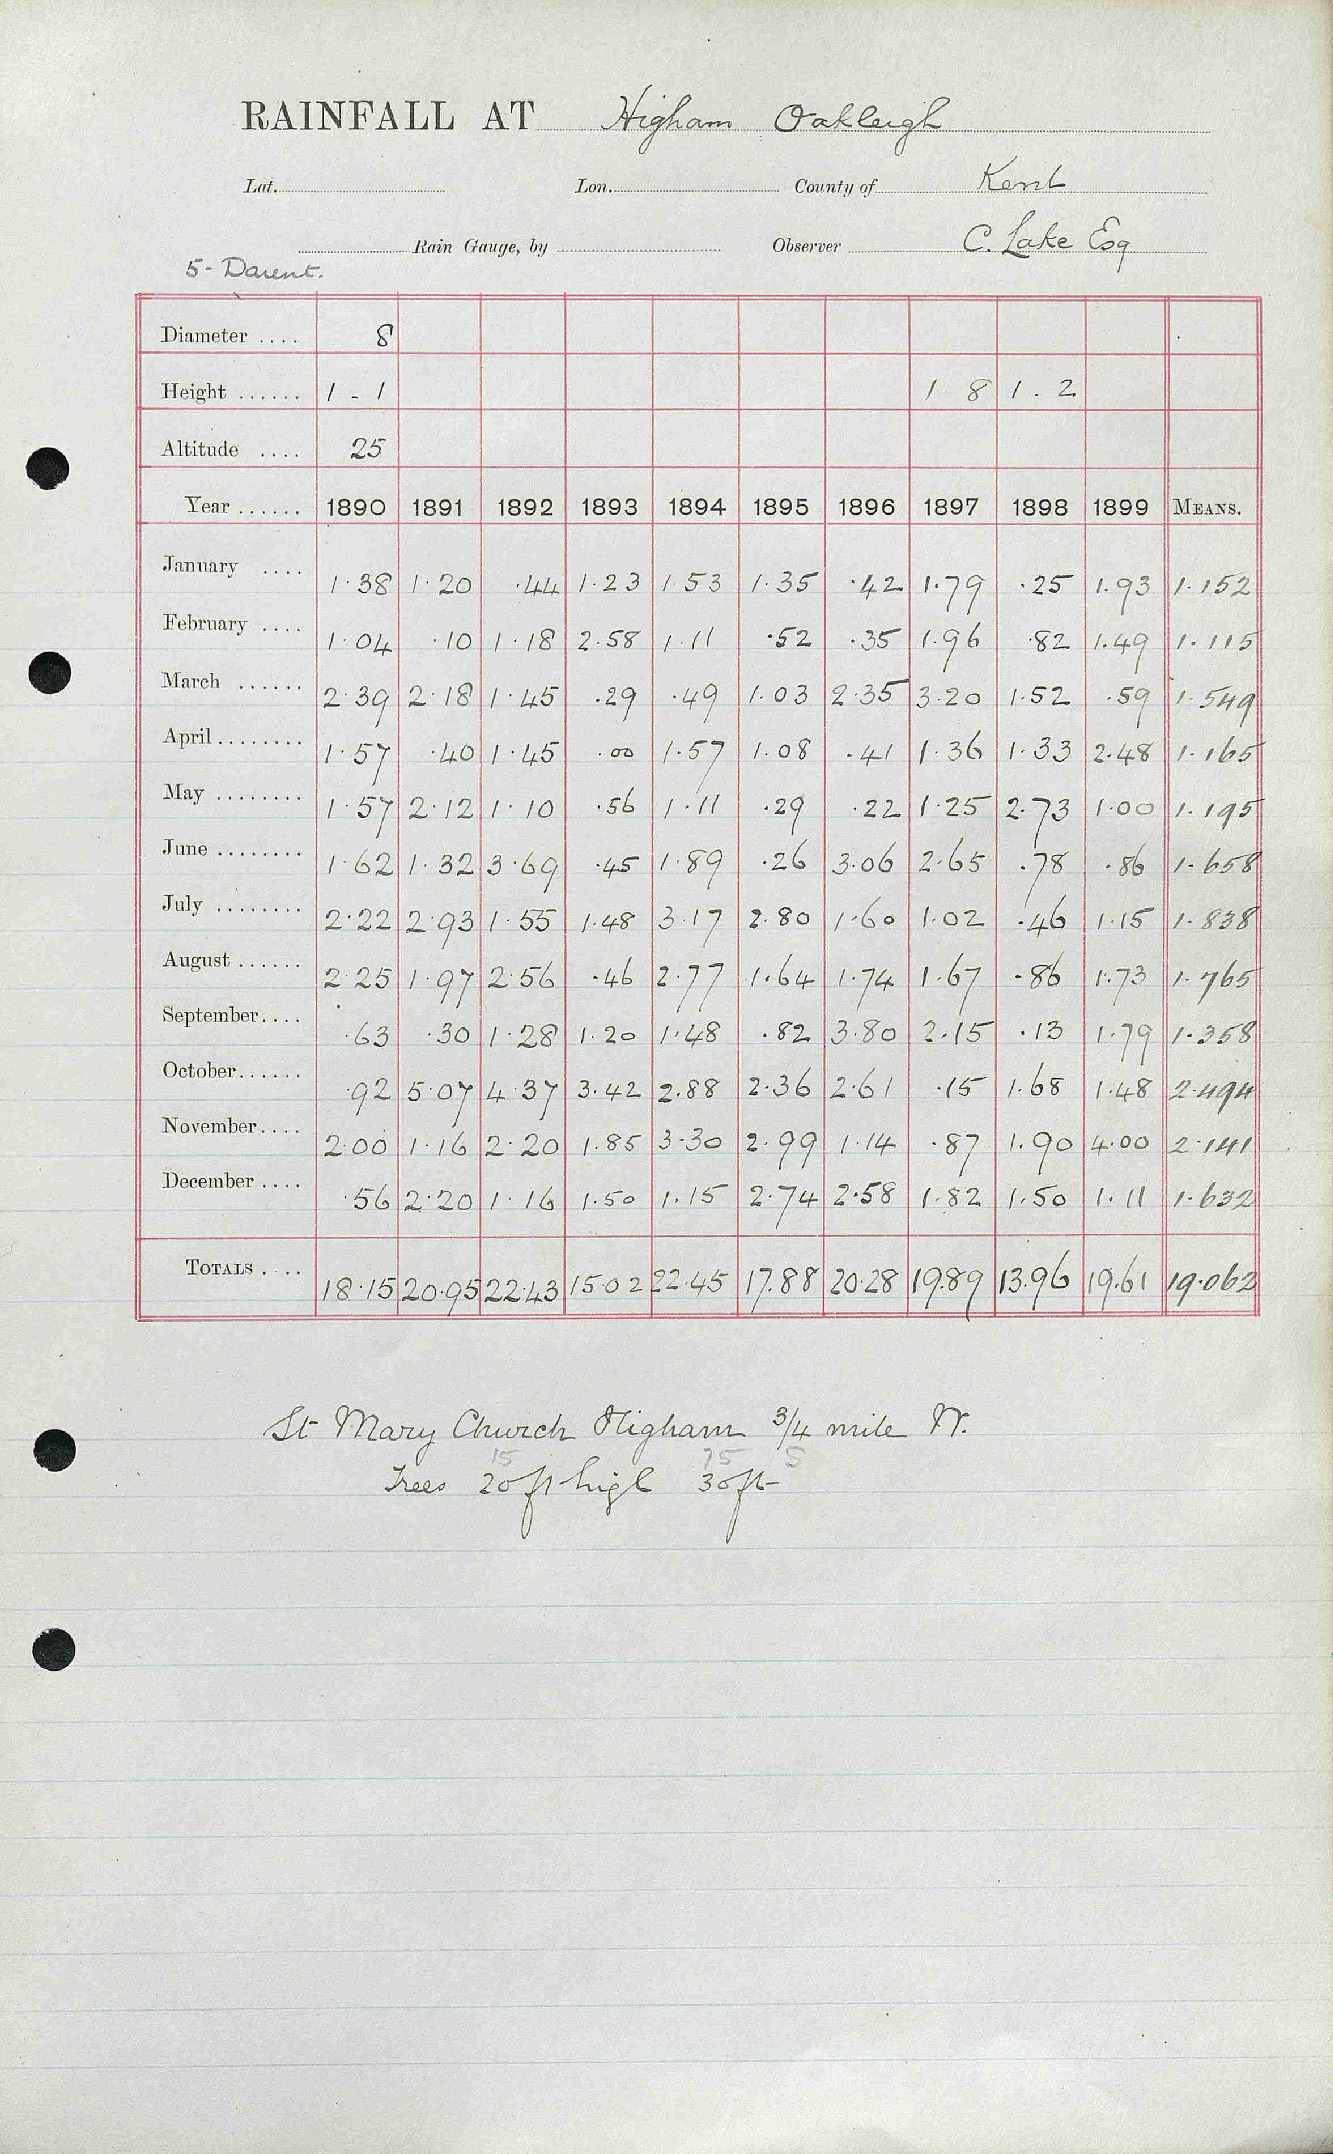 RAINFALL AT Higham Oakleigh
Lat. Lon. County of Kent
Rain Gauge, by Observer C. Lake Esq
5- Darent.
Diameter .... 8
Height ...... 1 - 1 1 8 1 . 2
Altitude .... 25
Year ...... 1890 1891 1892 1893 1894 1895 1896 1897 1898 1899 MEANS.
January .... 1.38 1.20 .44 1.23 1.53 1.35 .42 1.79 .25 1.93 1.152
February .... 1.04 .10 1.18 2.58 1.11 .52 .35 1.96 .82 1.49 1.115
March ...... 2.39 2.18 1.45 .29 .49 1.03 2.35 3.20 1.52 .59 1.549
April ........ 1.57 .40 1.45 .00 1.57 1.08 .41 1.36 1.33 2.48 1.165
May ........ 1.57 2.12 1.10 .56 1.11 .29 .22 1.25 2.73 1.00 1.195
June ........ 1.62 1.32 3.69 .45 1.89 .26 3.06 2.65 .78 .86 1.658
July ........ 2.22 2.93 1.55 1.48 3.17 2.80 1.60 1.02 .46 1.15 1.838
August ...... 2.25 1.97 2.56 .46 2.77 1.64 1.74 1.67 .86 1.73 1.765
September .... .63 .30 1.28 1.20 1.48 .82 3.80 2.15 .13 1.79 1.358
October ...... .92 5.07 4.37 3.42 2.88 2.36 2.61 .15 1.68 1.48 2.494
November .... 2.00 1.16 2.20 1.85 3.30 2.99 1.14 .87 1.90 4.00 2.141
December .... .56 2.20 1.16 1.50 1.15 2.74 2.58 1.82 1.50 1.11 1.632
TOTALS .... 18.15 20.95 22.43 15.02 22.45 17.88 20.28 19.89 13.96 19.61 19.062
St Mary Church Higham 3/4 mile W.
15 75 S
Trees 20ft high 30ft